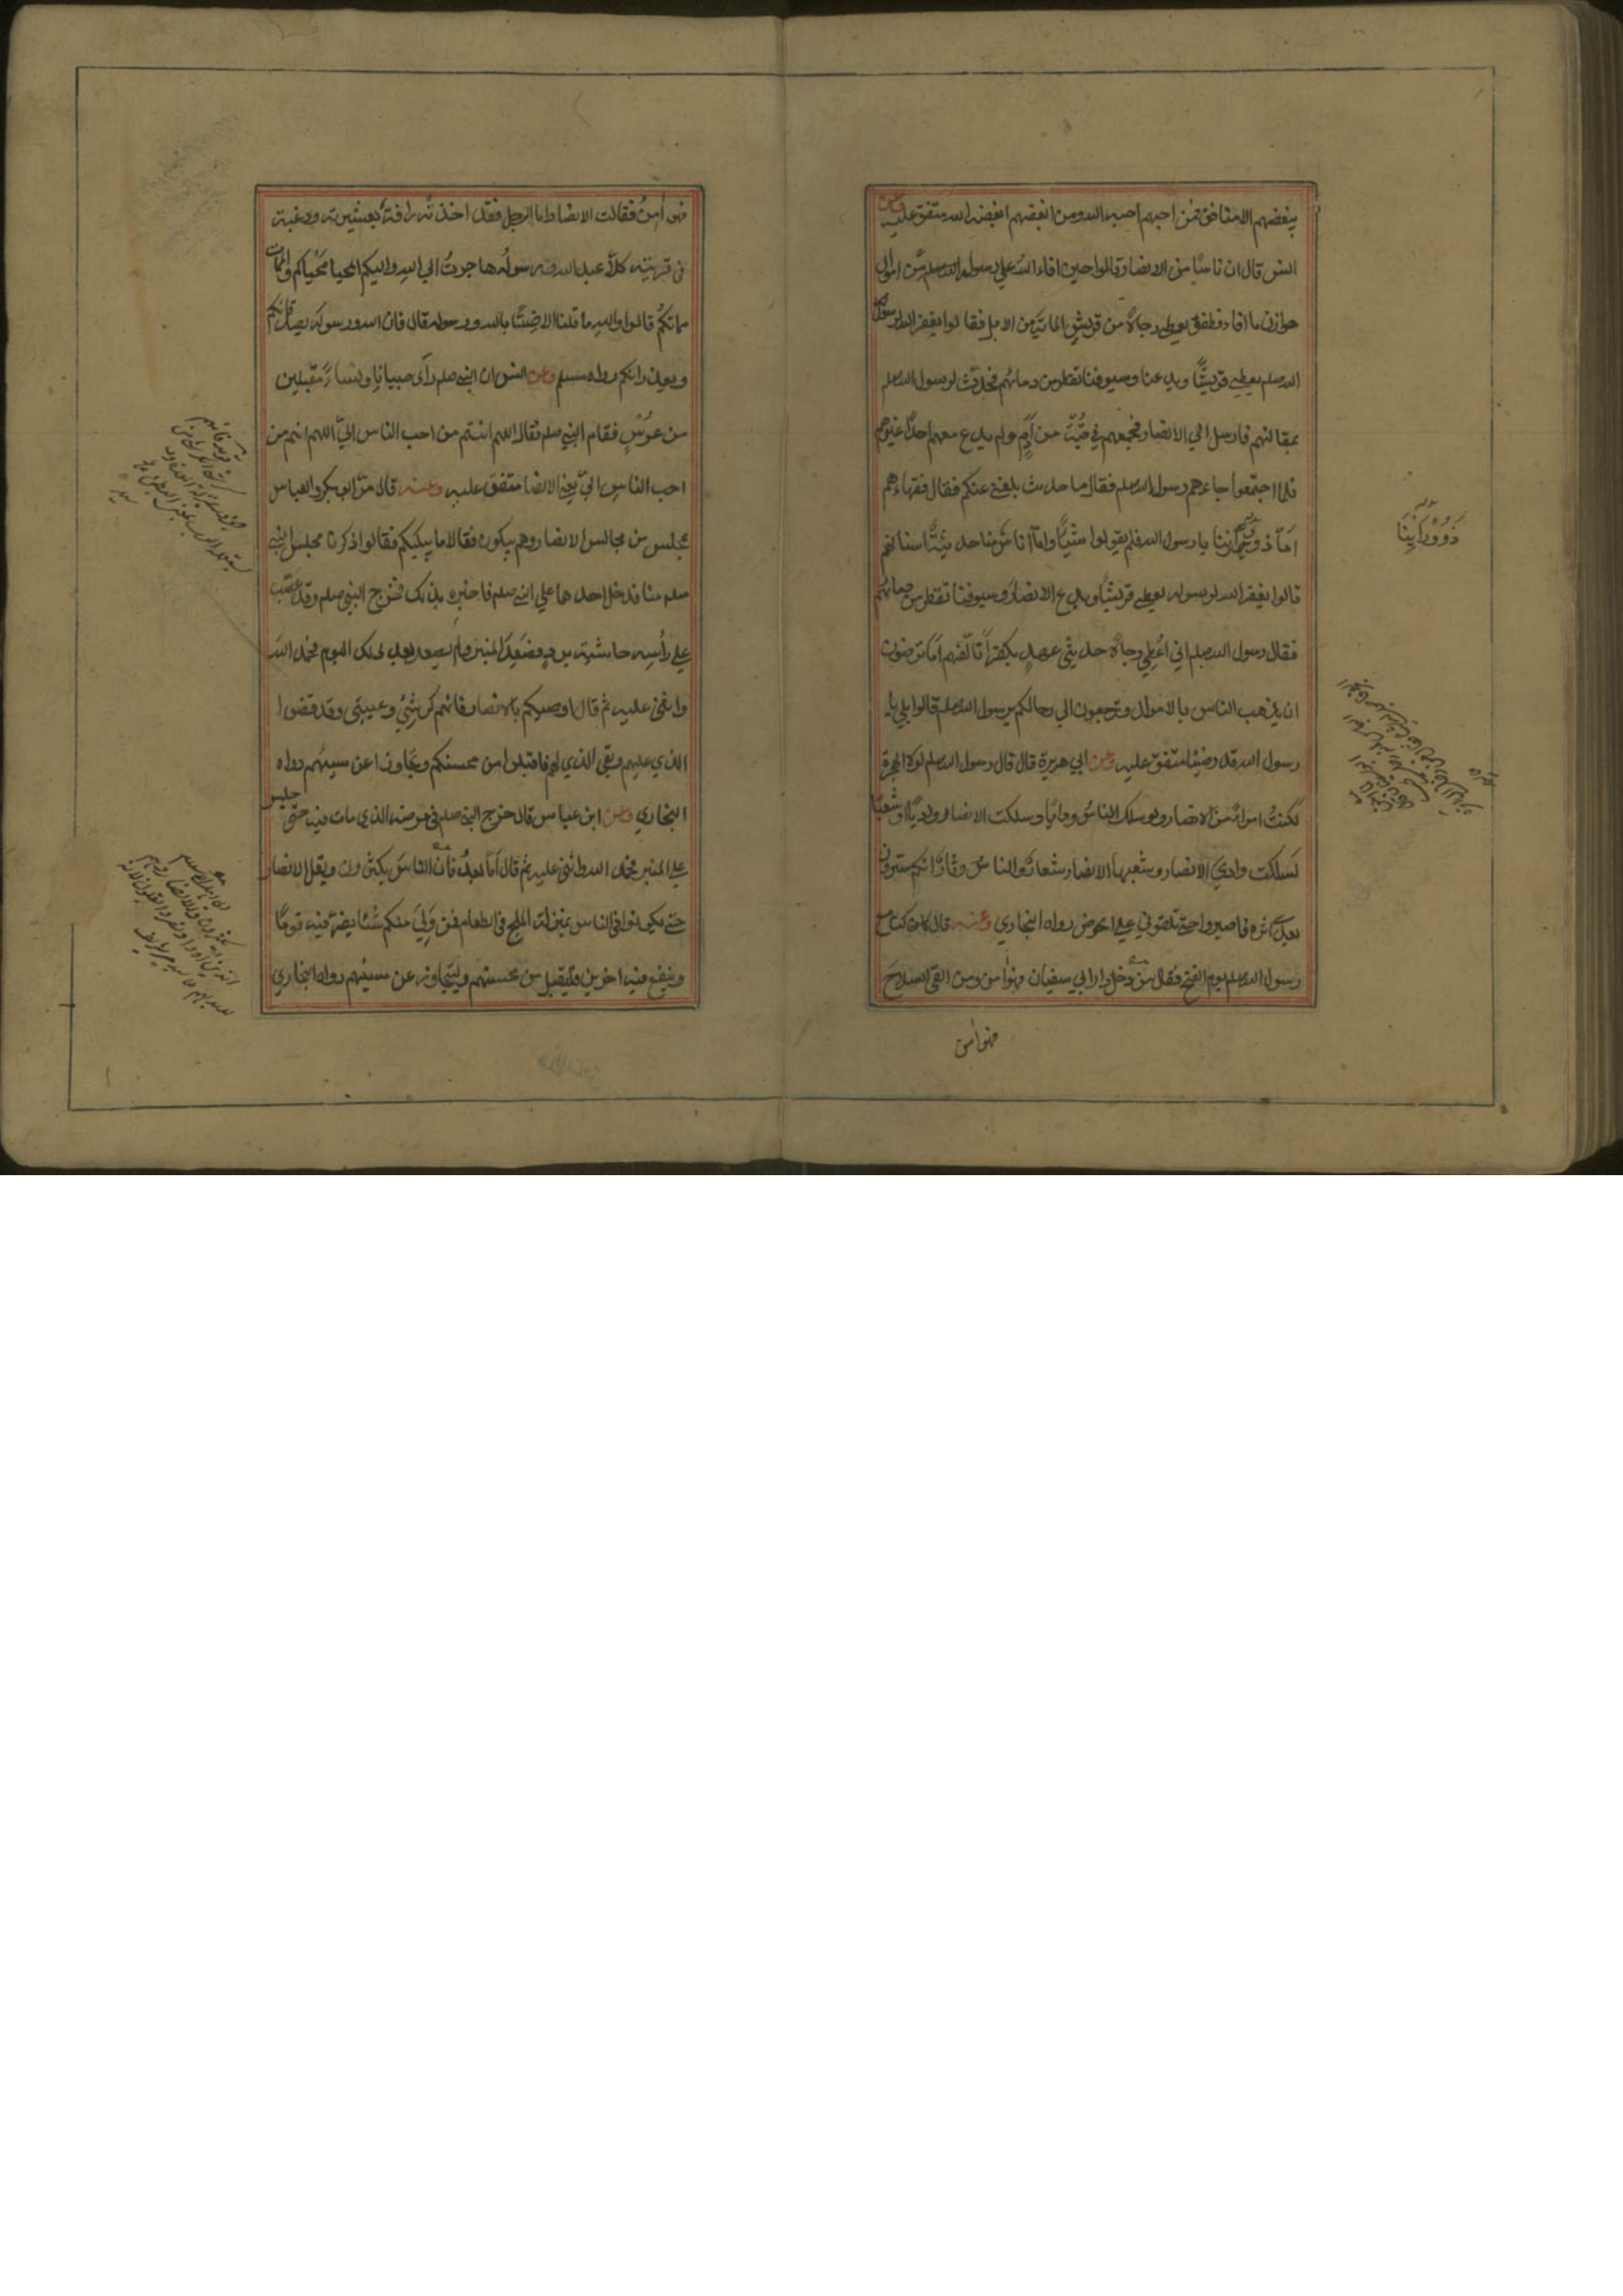 يبغضهم الا منافق فمن احبهم احبه الله ومن ابغضهم ابغضه الله متفق عليه وعن
انس قال ان ناسًا من الانصار قالوا حين افاء الله علي رسوله صلعم من اموال
هوازن ما افاء فطفق يعطي رجالا من قريش الماية من الابل فقالوا يغفر الله لرسول
الله صلعم يعطي قريشًا ويدعنا وسيوفنا تقطر من دمائهم فحدث لرسول الله صلعم
بمقالتهم فارسل الي الانصار فجمعهم في قبة من ادم ولم يدع معهم احدًا غيرهم
فلما اجتمعوا جاءهم رسول الله صلعم فقال ما حديث بلغني عنكم فقال فقهاءهم
اما ذوو راينا يا رسول الله فلم يقولوا شيًا واما اناس منا حديثة اسنانهم
قالوا يغفر الله لرسوله يعطي قريشًا ويدع الانصار وسيوفنا تقطر من دمائهم
فقال رسول الله صلعم اني اعطي رجالا حديثي عهد بكفر اتالفهم اما ترضون
ان يذهب الناس بالاموال وترجعون الي رحالكم برسول الله صلعم قالوا بلي يا
رسول الله قد رضينا متفق عليه وعن ابي هريرة قال قال رسول الله صلعم لولا الهجرة
لكنت امرأ من الانصار ولو سلك الناس واديًا وسلكت الانصار واديًا او شعبًا
لسلكت وادي الانصار وشعبها الانصار شعار والناس دثار انكم سترون
بعدي اثرة فاصبروا حتي تلقوني علي الحوض رواه البخاري وعنه قال كنا مع
رسول الله صلعم يوم الفتح فقال من دخل دار ابي سفيان فهو امن ومن القي السلاح
فهو امن
ذوو راينا
فهو امن فقالت الانصار اما الرجل فقد اخذته رافة بعشيرته ورغبة
في قريته كلا اني عبد الله ورسوله هاجرت الي الله واليكم المحيا محياكم والممات
مماتكم قالوا والله ما قلنا الا ضنًا بالله ورسوله قال فان الله ورسوله يصدقانكم
ويعذرانكم رواه مسلم وعن انس ان النبي صلعم رأى صبيانا ونساءً مقبلين
من عرس فقام النبي صلعم فقال اللهم انتم من احب الناس الي اللهم انتم من
احب الناس الي يعني الانصار متفق عليه وعنه قال مر ابو بكر والعباس
بمجلس من مجالس الانصار وهم يبكون فقالا ما يبكيكم فقالوا ذكرنا مجلس النبي
صلعم منا فدخل احدهما علي النبي صلعم فاخبره بذلك فخرج النبي صلعم وقد عصب
علي رأسه حاشية برد فصعد المنبر ولم يصعد بعد ذلك اليوم فحمد الله
واثني عليه ثم قال اوصيكم بالانصار فانهم كرشي وعيبتي وقد قضوا
الذي عليهم وبقي الذي لهم فاقبلوا من محسنكم وتجاوزوا عن مسيئهم رواه
البخاري وعن ابن عباس قال خرج النبي صلعم في مرضه الذي مات فيه حتي جلس
علي المنبر فحمد الله واثني عليه ثم قال اما بعد فان الناس يكثرون ويقل الانصار
حتي يكونوا في الناس بمنزلة الملح في الطعام فمن ولي منكم شيئا يضر فيه قومًا
وينفع فيه اخرين فليقبل من محسنهم وليتجاوز عن مسيئهم رواه البخاري